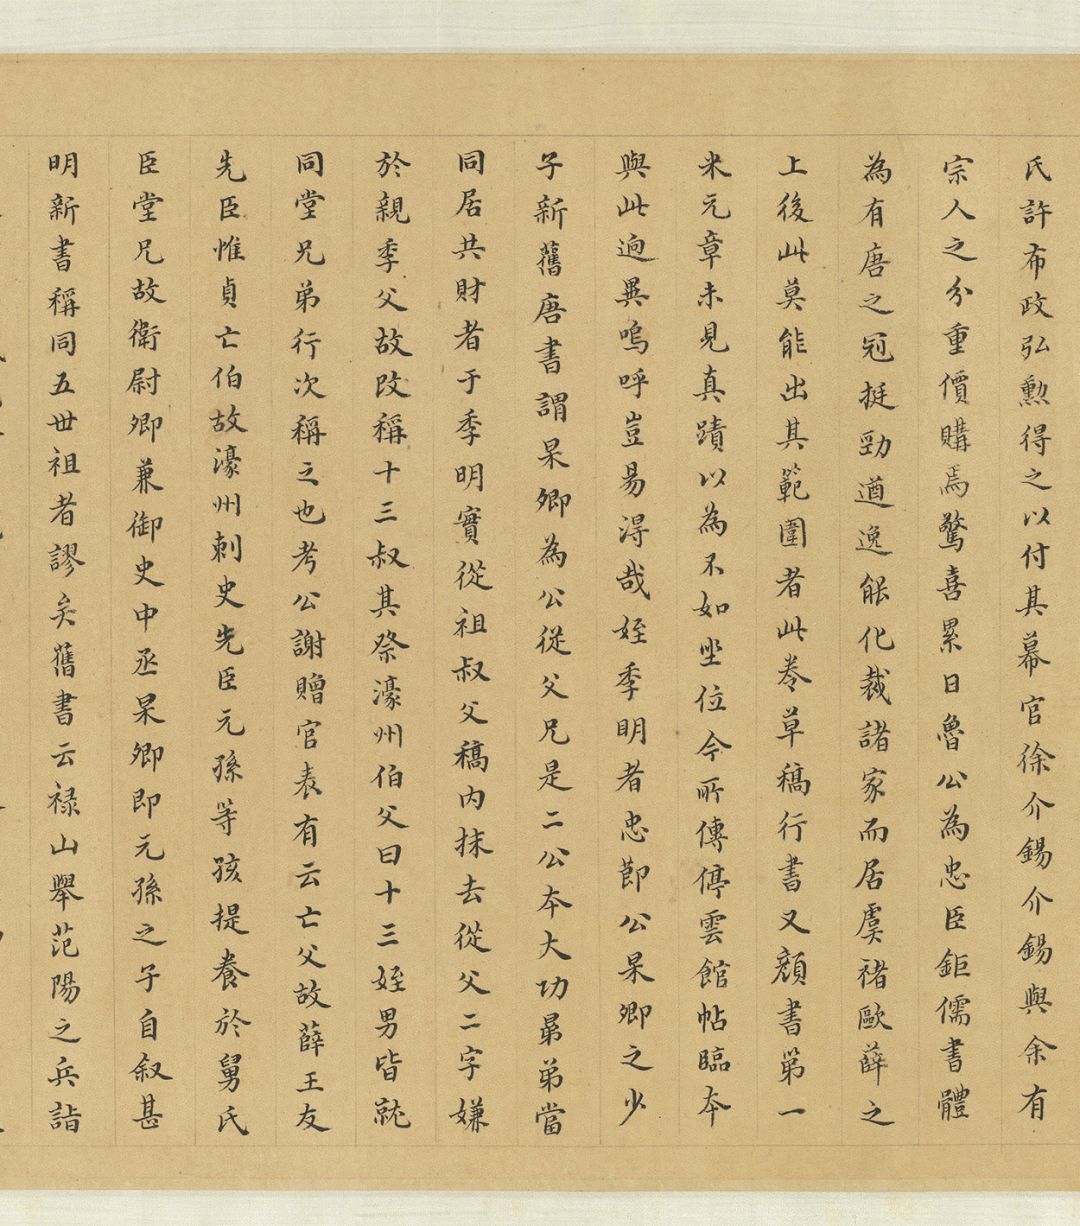 氏許布政弘勲得之以付其幕官徐介錫介錫與余有
宗人之分重價購焉驚喜累日魯公為忠臣鉅儒書體
為有唐之冠挺勁遒逸能化裁諸家而居虞禇歐薛之
上後此莫能出其範圍者此卷草稿行書又顔書第一
米元章未見真蹟以為不如坐位今所傳停雲館帖臨本
與此逈異嗚呼豈易淂哉姪季明者忠節公杲卿之少
子新舊唐書謂杲卿為公從父兄是二公本大功昴弟當
同居共財者于季明實從祖叔父稿內抹去從父二字嫌
於親季父故改稱十三叔其祭濠州伯父曰十三姪男皆就
同堂兄弟行次稱之也考公謝贈官表有云亡父故薛王友
先臣惟貞亡伯故濠州刺史先臣元孫等孩提養於舅氏
臣堂兄故衛尉卿兼御史中丞杲卿即元孫之子自叙甚
明新書稱同五世祖者謬矣舊書云禄山舉范陽之兵詣